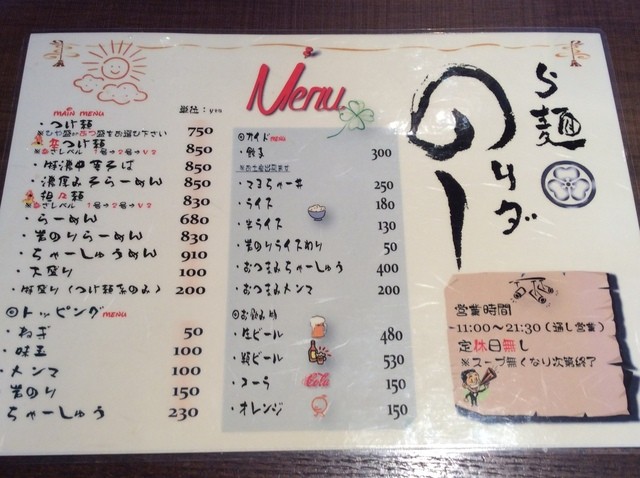 Menu
ら麺
のりダー
MAIN MENU
単位：yen
・つけ麺 750
※ひや盛かあつ盛をお選び下さい
辛つけ麺 850
※辛さレベル 1号→2号→V3
・特濃中華そば 850
・濃厚みそらーめん 850
担々麺 830
※辛さレベル 1号→2号→V3
・らーめん 680
・岩のりらーめん 830
・ちゃーしゅうめん 910
・大盛り 100
・特盛り（つけ麺系のみ） 200
◎トッピング MENU
・ねぎ 50
・味玉 100
・メンマ 100
・岩のり 150
ちゃーしゅう 230
◎サイド MENU
・餃子 300
※お土産出来ます
・てまちゃー丼 250
・ライス 180
・半ライス 130
・岩のりライスわり 50
・おつまみちゃーしゅう 400
・おつまみメンマ 200
◎お飲み物
・生ビール 480
・瓶ビール 530
・コーラ Cola 150
・オレンジ 150
営業時間
~11:00~21:30（通し営業）
定休日無し
※スープ無くなり次第終了